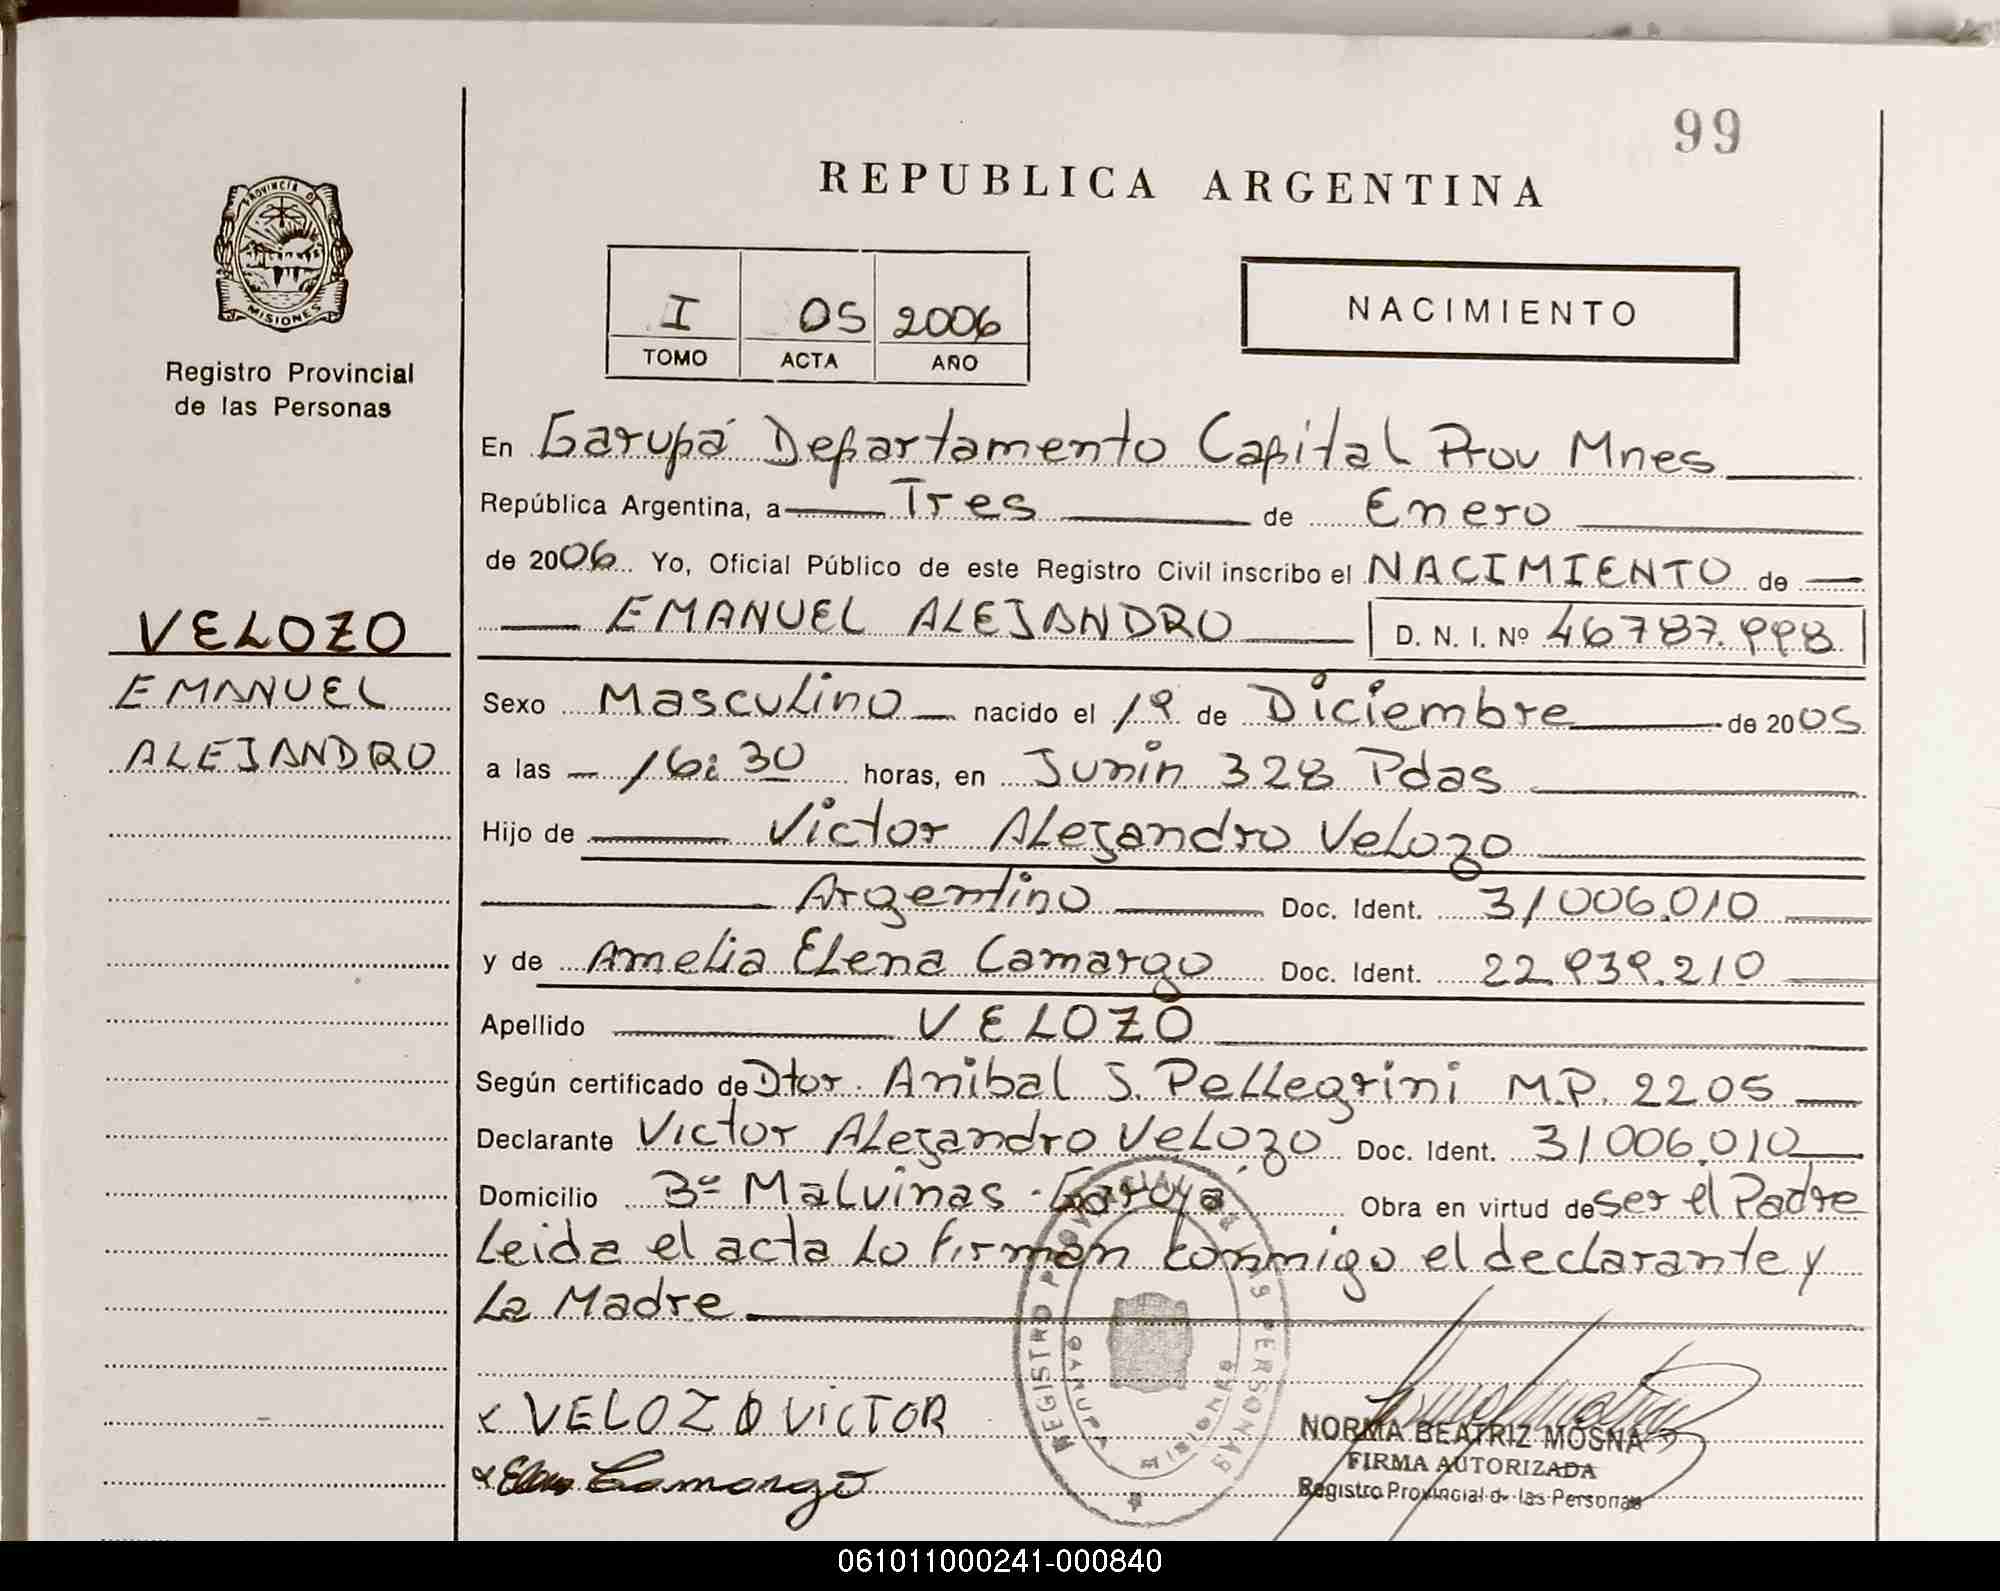 99
REPUBLICA ARGENTINA
PROVINCIA DE
MISIONES
Registro Provincial
de las Personas
I 05 2006
TOMO ACTA AÑO
NACIMIENTO
En Garupá Departamento Capital Prov Mnes
República Argentina, a Tres de Enero
de 2006 Yo, Oficial Público de este Registro Civil inscribo el NACIMIENTO de
EMANUEL ALEJANDRO D. N. I. Nº 46787.998
VELOZO
EMANUEL
ALEJANDRO
Sexo Masculino nacido el 19 de Diciembre de 2005
a las 16:30 horas, en Junin 328 Pdas
Hijo de Victor Alejandro Velozo
Argentino Doc. Ident. 31006.010
y de Amelia Elena Camargo Doc. Ident. 22.939.210
Apellido VELOZO
Según certificado de Dtor. Anibal S. Pellegrini M.P. 2205
Declarante Victor Alejandro Velozo Doc. Ident. 31006.010
Domicilio 3º Malvinas - Obra en virtud de ser el Padre
Leida el acta Lo firman conmigo el declarante y
La Madre
VELOZO VICTOR
Camargo
REGISTRO PROVINCIAL DE LAS PERSONAS
GARUPA MISIONES
NORMA BEATRIZ MOSNA
FIRMA AUTORIZADA
Registro Provincial de las Personas
061011000241-000840